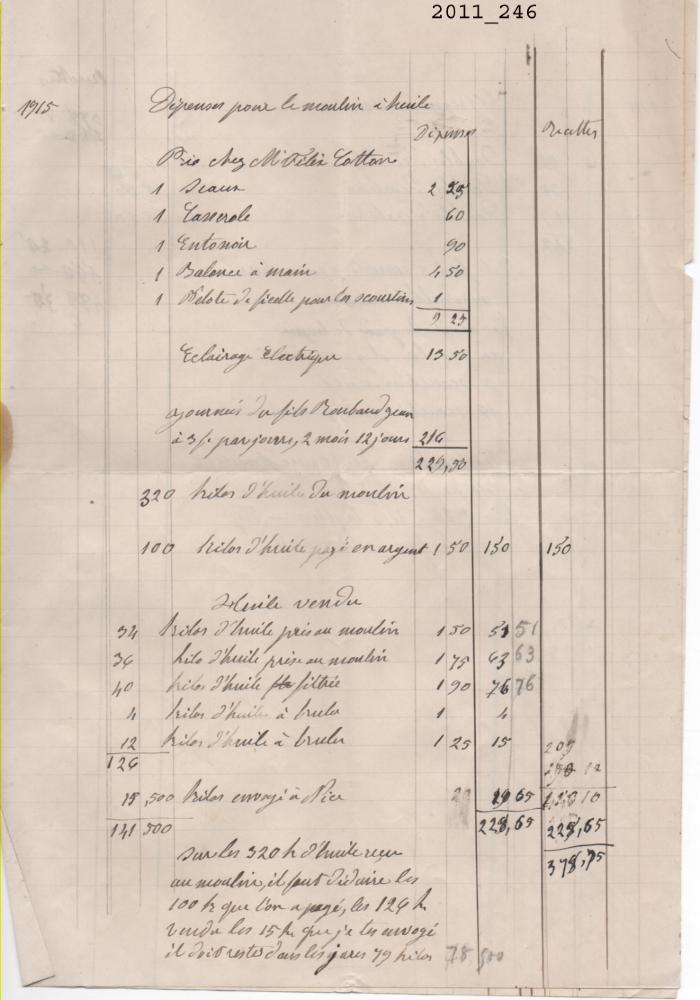 2011_246
1915 Dépenses pour le moulin à huile
Dépenses Recettes
Pris chez Mr Félix Cotton
1 Seaux 2 25
1 Casserole 60
1 Entonoir 90
1 Balance à main 4 50
1 Pelote de ficelle pour les scourtins 1
9 25
Eclairage Electrique 13 50
ajournées du fils Roubaud Jean
à 3 f. par jours, 2 mois 12 jours 216
229,50
320 kilos d'huile du moulin
100 kilos d'huile payé en argent 1 50 150 150
Huile vendu
34 kilos d'huile pris au moulin 1 50 51 51
36 kilo d'huile prise au moulin 1 75 63 63
40 kilos d'huile filtrée 1 90 76 76
4 kilos d'huile à bruler 1 4
12 kilos d'huile à bruler 1 25 15 209
126
15,500 kilos envoyé à Nice 29 65
141 500 228,65 228,65
378,75
Sur les 320 k d'huile reçu
au moulin, il faut déduire les
100 k que l'on a payé, les 126 k
vendu les 15 k que je t'es envoyé
il doit rester dans les jares 79 kilos 78 500